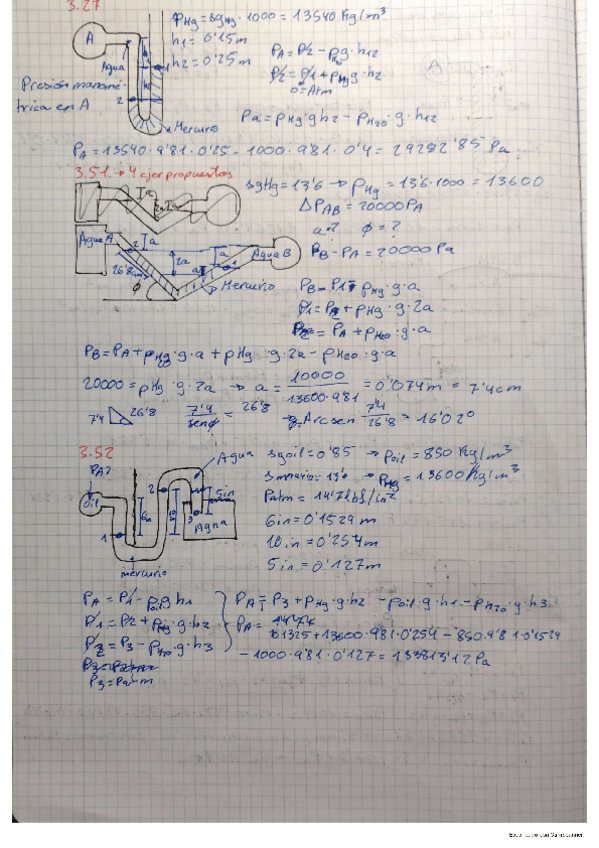 3.27
ρHg = sgHg · 1000 = 13540 Kg/m³
h1 = 0'15 m
h2 = 0'25 m
A
Agua
Presión manomé-
trica en A
2
Mercurio
PA = P2 - ρH2O g · h12
P2 = P1 + ρHg g · h2
0 = Atm
Pa = ρHg · g h2 - ρH2O · g · h12
PA = 13540 · 9'81 · 0'25 - 1000 · 9'81 · 0'4 = 29282'85 Pa
3.51. → 4 ejer propuestos
sgHg = 13'6 → ρHg = 13'6 · 1000 = 13600
ΔPAB = 20000 PA
a = ? ϕ = ?
PB - PA = 20000 Pa
Agua A
a
2a
a
Agua B
26'8 cm
ϕ
Mercurio
PB = P1 - ρHg · g · a
P1 = P2 + ρHg · g · 2a
P2 = PA + ρH2O · g · a
PB = PA + ρH2O · g · a + ρHg · g · 2a - ρH2O · g · a
20000 = ρHg · g · 2a → a = 10000 / 13600 · 9'81 = 0'074 m = 7'4 cm
7'4 26'8 7'4 / senϕ = 26'8 → Arcsen 7'4 / 26'8 = 16'02°
3.52
PA?
oil
Agua
2
5in
6in
10in
3
Agua
1
mercurio
sgoil = 0'85 → ρoil = 850 Kg/m³
ρHg = 13600 Kg/m³
Patm = 14'7 lbf/in²
6in = 0'1529 m
10in = 0'254 m
5in = 0'127 m
PA = P1 - ρoil g h1
P1 = P2 + ρHg · g · h2
P2 = P3 - ρH2O · g · h3
P3 = Patm
PA = P3 + ρHg · g · h2 - ρoil · g · h1 - ρH2O · g · h3
PA =
101325 + 13600 · 9'81 · 0'254 - 850 · 9'81 · 0'1529
- 1000 · 9'81 · 0'127 = 133813'12 Pa